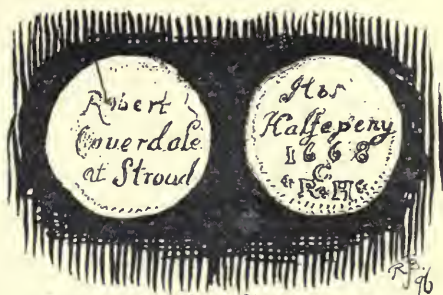 Robert
Coverdale
at Stroud
His
Halfepeny
1668
C
R H
96